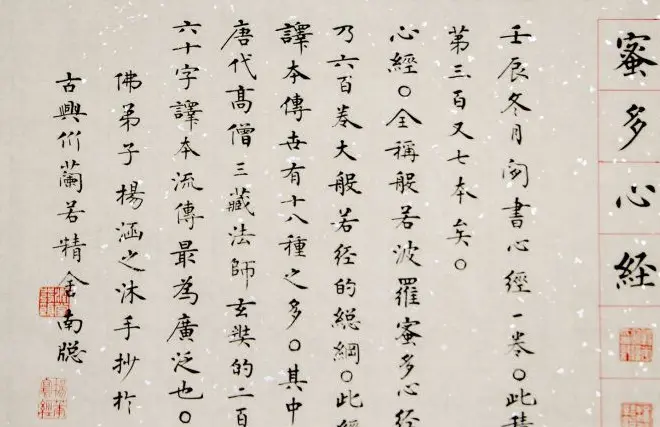 蜜多心経
壬辰冬月向書心經一卷。此積
第三百又七本矣。
心經。全稱般若波羅蜜多心經
乃六百卷大般若经的総綱。此經
譯本傳世有十八種之多。其中
唐代高僧三藏法師玄奘的二百
六十字譯本流傳最為廣泛也。
佛弟子楊涵之沐手抄於
古興州蘭若精舍南牕